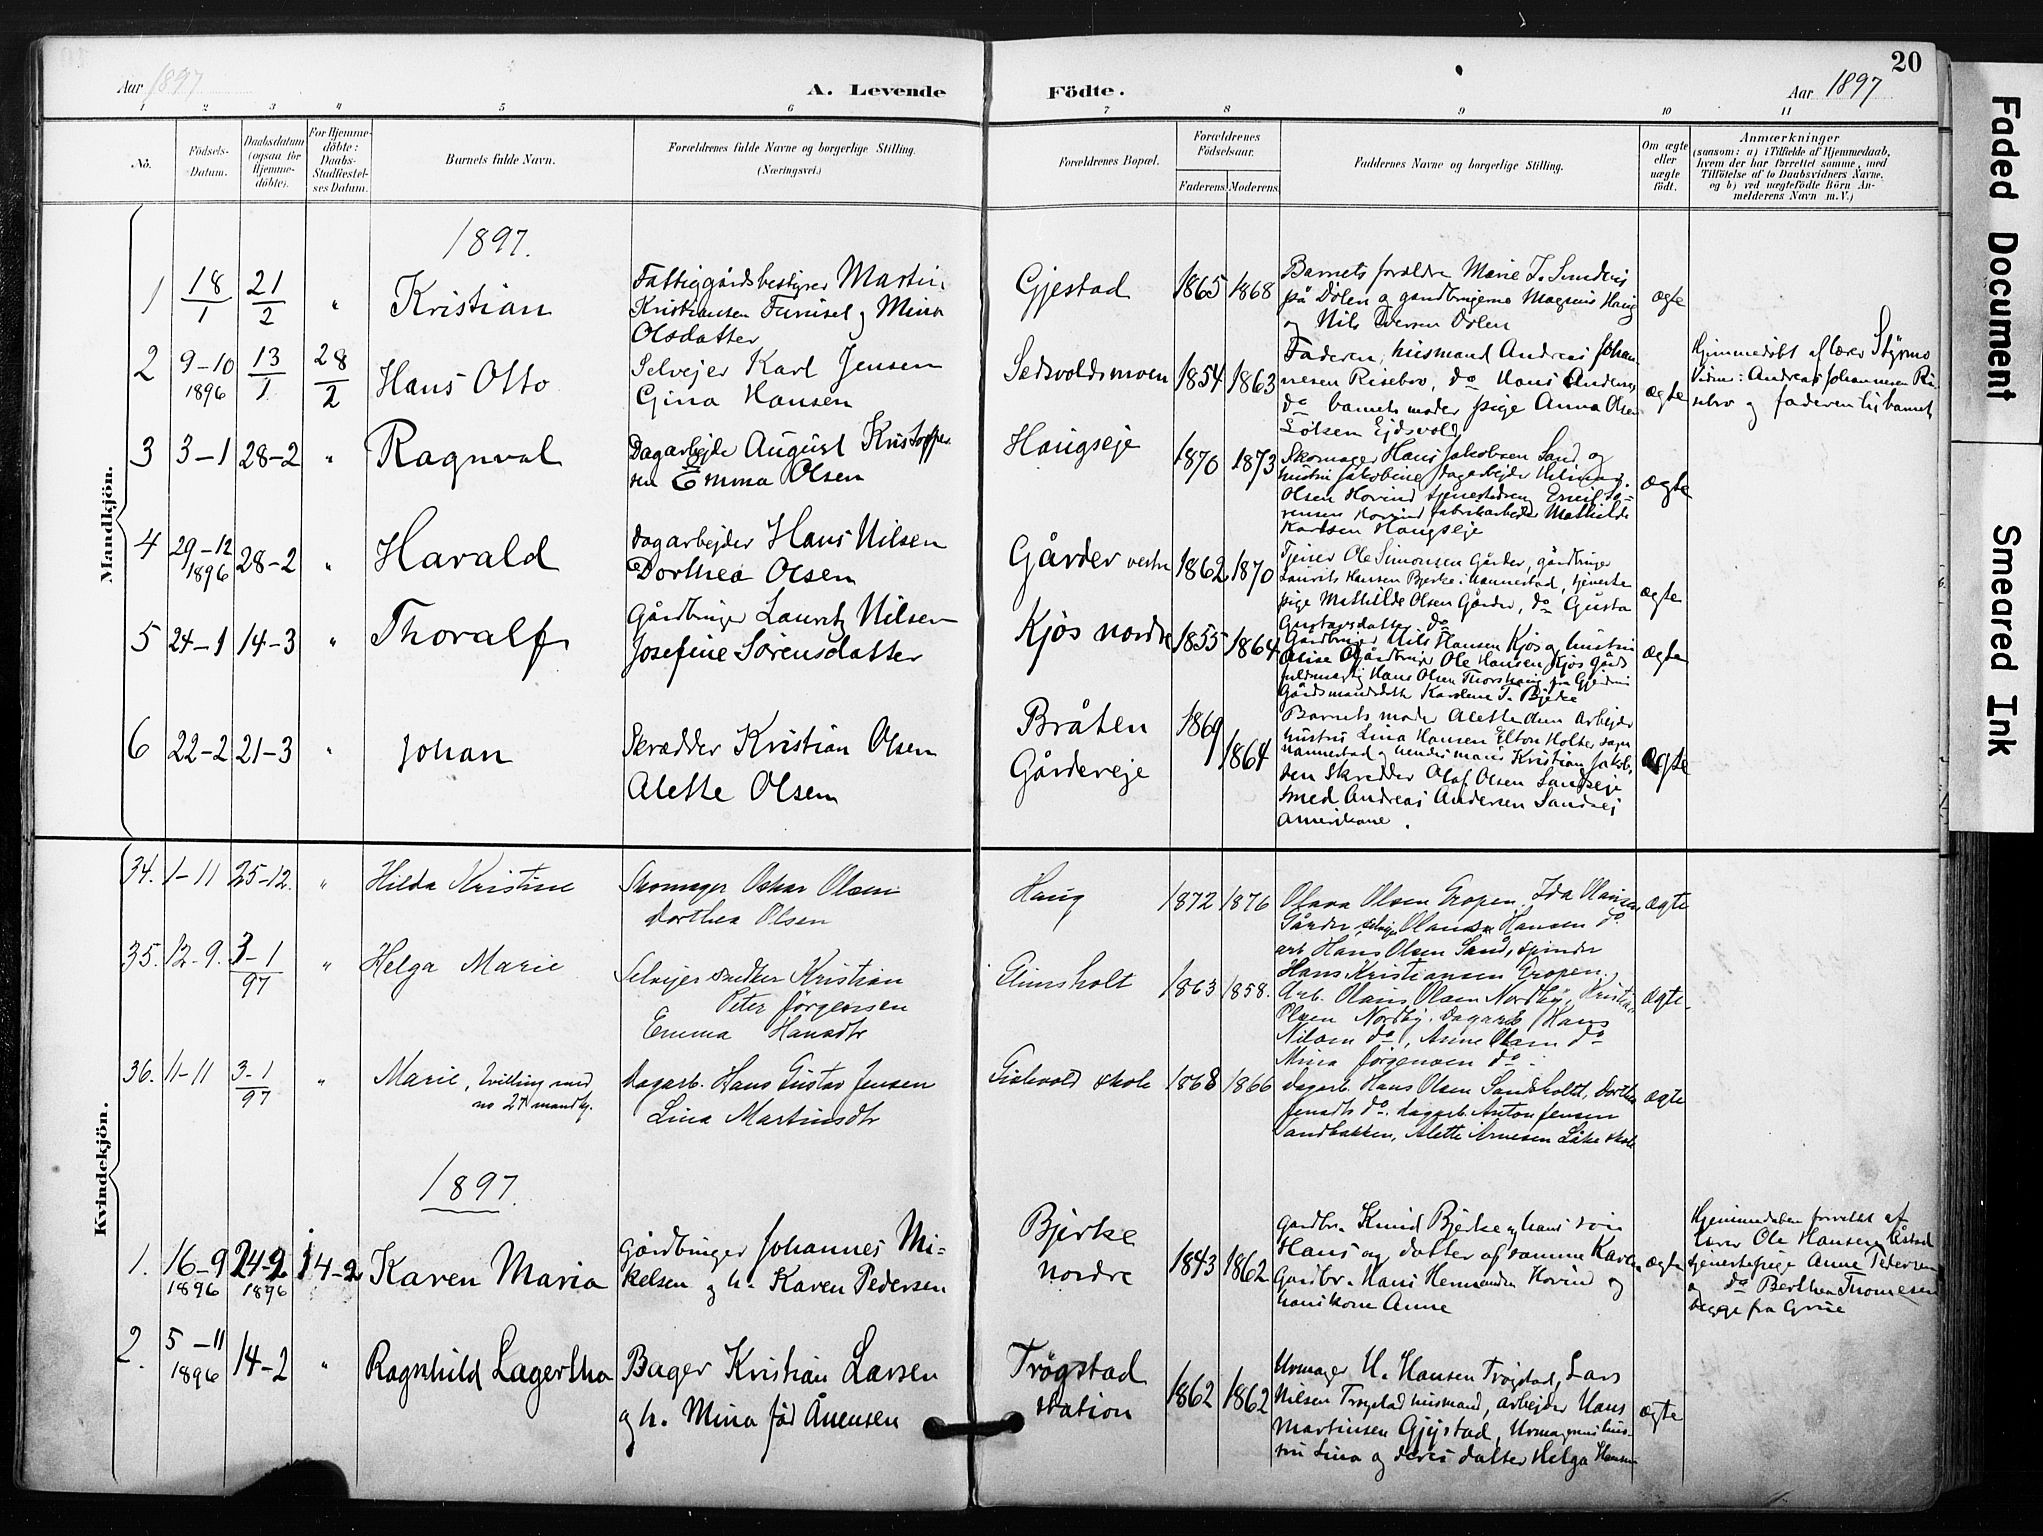 20
Aar 1897
A. Levende
Födte.
Aar 1897
1 2 3 4 5 6 7 8 9 10 11
No.
Födsels-
Datum.
Daabsdatum
(ogsaa for
Hjemme-
döbte).
For Hjemme-
döbte:
Daabs-
Stadfæstel-
ses Datum.
Barnets fulde Navn.
Forældrenes fulde Navne og borgerlige Stilling.
(Næringsvei.)
Forældrenes Bopæl.
Forældrenes
Födselsaar.
Faderens. Moderens.
Faddernes Navne og borgerlige Stilling.
Om ægte
eller
uægte
födt.
Anmærkninger
(saasom: a) i Tilfælde af Hjemmedaab,
hvem der har forrettet samme, med
Tilföielse af to Daabsvidners Navne,
og b) ved uægtefödte Börn An-
melderens Navn m. V.)
Mandkjön.
1897.
1 18/1 21/2 " Kristian
Fattiggårdsbestyrer Martin
Kristiansen Furuset og Mina
Olsdatter
Gjestad 1865 1868
Barnets forældre Marie J.
på Dølen og gaardbrugerne Magnus Haug
og Nils Iversen Dølen
ægte
2 9-10 1896 13/1 28/2 Hans Otto
Selvejer Karl Jensen
Gina Hansen
Sedsvoldsmoen 1854 1863
Faderen, husmand Andreas Johan-
nesen Risebro, do Hans Anderse
do barnets moder pige Anna Olsen
Eidsvold
ægte
Hjemmedøbt af lærer Styrmo
Vidne: Andreas Johannesen Ri-
sebro og faderen til barnet
3 3-1 28-2 " Ragnval
Dagarbejder August Kristoffer
sen Emma Olsen
Haugseje 1870 1873
Skomager Hans Jakobsen Sand og
hustru Jakobine, dagarbejder Hilmar
Olsen Hovind tjenestedreng Emil Sø-
rensen Hovind fabrikarbejder Mathilde
Karlsen Haugseje
ægte
4 29-12 1896 28-2 " Harald
Dagarbejder Hans Nilsen
Dorthea Olsen
Gårder vestre 1862 1870
Tjener Ole Simonsen Gårder, gårdbruger
Laurits Hansen Bjerke i Nannestad, tjeneste
pige Mathilde Olsen Gårder, do Gusta
Gustavsdatter do
ægte
5 24-1 14-3 " Thoralf
Gårdbruger Lauritz Nilsen
Josefine Sörensdatter
Kjøs nordre 1855 1864
Gårdbruger Nils Hansen Kjøs og hustru
Alise Gårdbruger Ole Hansen Kjøs gårds
fuldmægtig Hans Olsen Thorshaug fra Gjerdrum
Gårdmandsdatt Karoline T. Bjerke
ægte
6 22-2 21-3 " Johan
Skrædder Kristian Olsen
Alette Olsen
Bråten
Gårdereje
1869 1864
Barnets moder Alette dem Arbejder
hustru Lina Hansen Elton Holter sogn
Nannestad og hendes mand Kristian Jakob-
sen Skrædder Olaf Olsen Sandseje
smed Andreas Andersen Sandseje
Amerikane.
ægte
Kvindekjön.
34. 1-11 25-12. " Hilda Kristine
Skomager Oskar Olsen
Dorthea Olsen
Haug 1872 1876
Olava Olsen Gropen, Ida Olausen
Gårder, selvejer Olaus Hansen do
arb Hans Olsen Sand, spinder
Hans Kristiansen Gropen.
ægte
35. 12-9. 3-1/97 " Helga Marie
Selvejer snedker Kristian
Peter Jörgensen
Emma Hansdtr
Elinsholt 1863 1858.
Arb. Olaus Olsen Nordby, Kristian
Olsen Nordby. Dagarb Hans
Nilsen do, Anne Olsen do
Mina Jörgensen do.
ægte.
36. 11-11 3-1/97 " Marie, tvilling med
no 27 mandkj.
Dagarb. Hans Gustav Jensen
Lina Martinsdtr
Gislevold skole 1868 1866
Dagarb. Hans Olsen Sandsholdt, Dorthea
Jensdtr do. dagarb. Anton Jensen
Sandbakken, Alette Arnesen Låke skole
ægte
1897.
1. 16-9 1896 24-9 1896 14-2 Karen Maria
Gårdbruger Johannes Mi-
kelsen og h. Karen Pedersen
Bjerke
nordre
1843 1862
Gaardbr. Knud Bjerke og hans søn
Hans og datter af samme Karen
Gaardbr. Hans Hermansen Hovind og
hans kone Anne
ægte
Hjemmedåben forrettet af
lærer Ole Hansen Åstad
tjenestepige Anne Pedersen
og do Berthea Thomesen
begge fra Grue
2. 5-11 1896 14-2 " Ragnhild Lagertha
Bager Kristian Larsen
og h. Mina fød Ånensen
Trögstad
station
1862 1862
Urmager H. Hansen Trögstad, Lars
Nilsen Trögstad husmand, arbejder Hans
Martinsen Gjestad, Urmagerens hus-
tru Lina og deres datter Helga Hansen
ægte
Faded Document
Smeared Ink